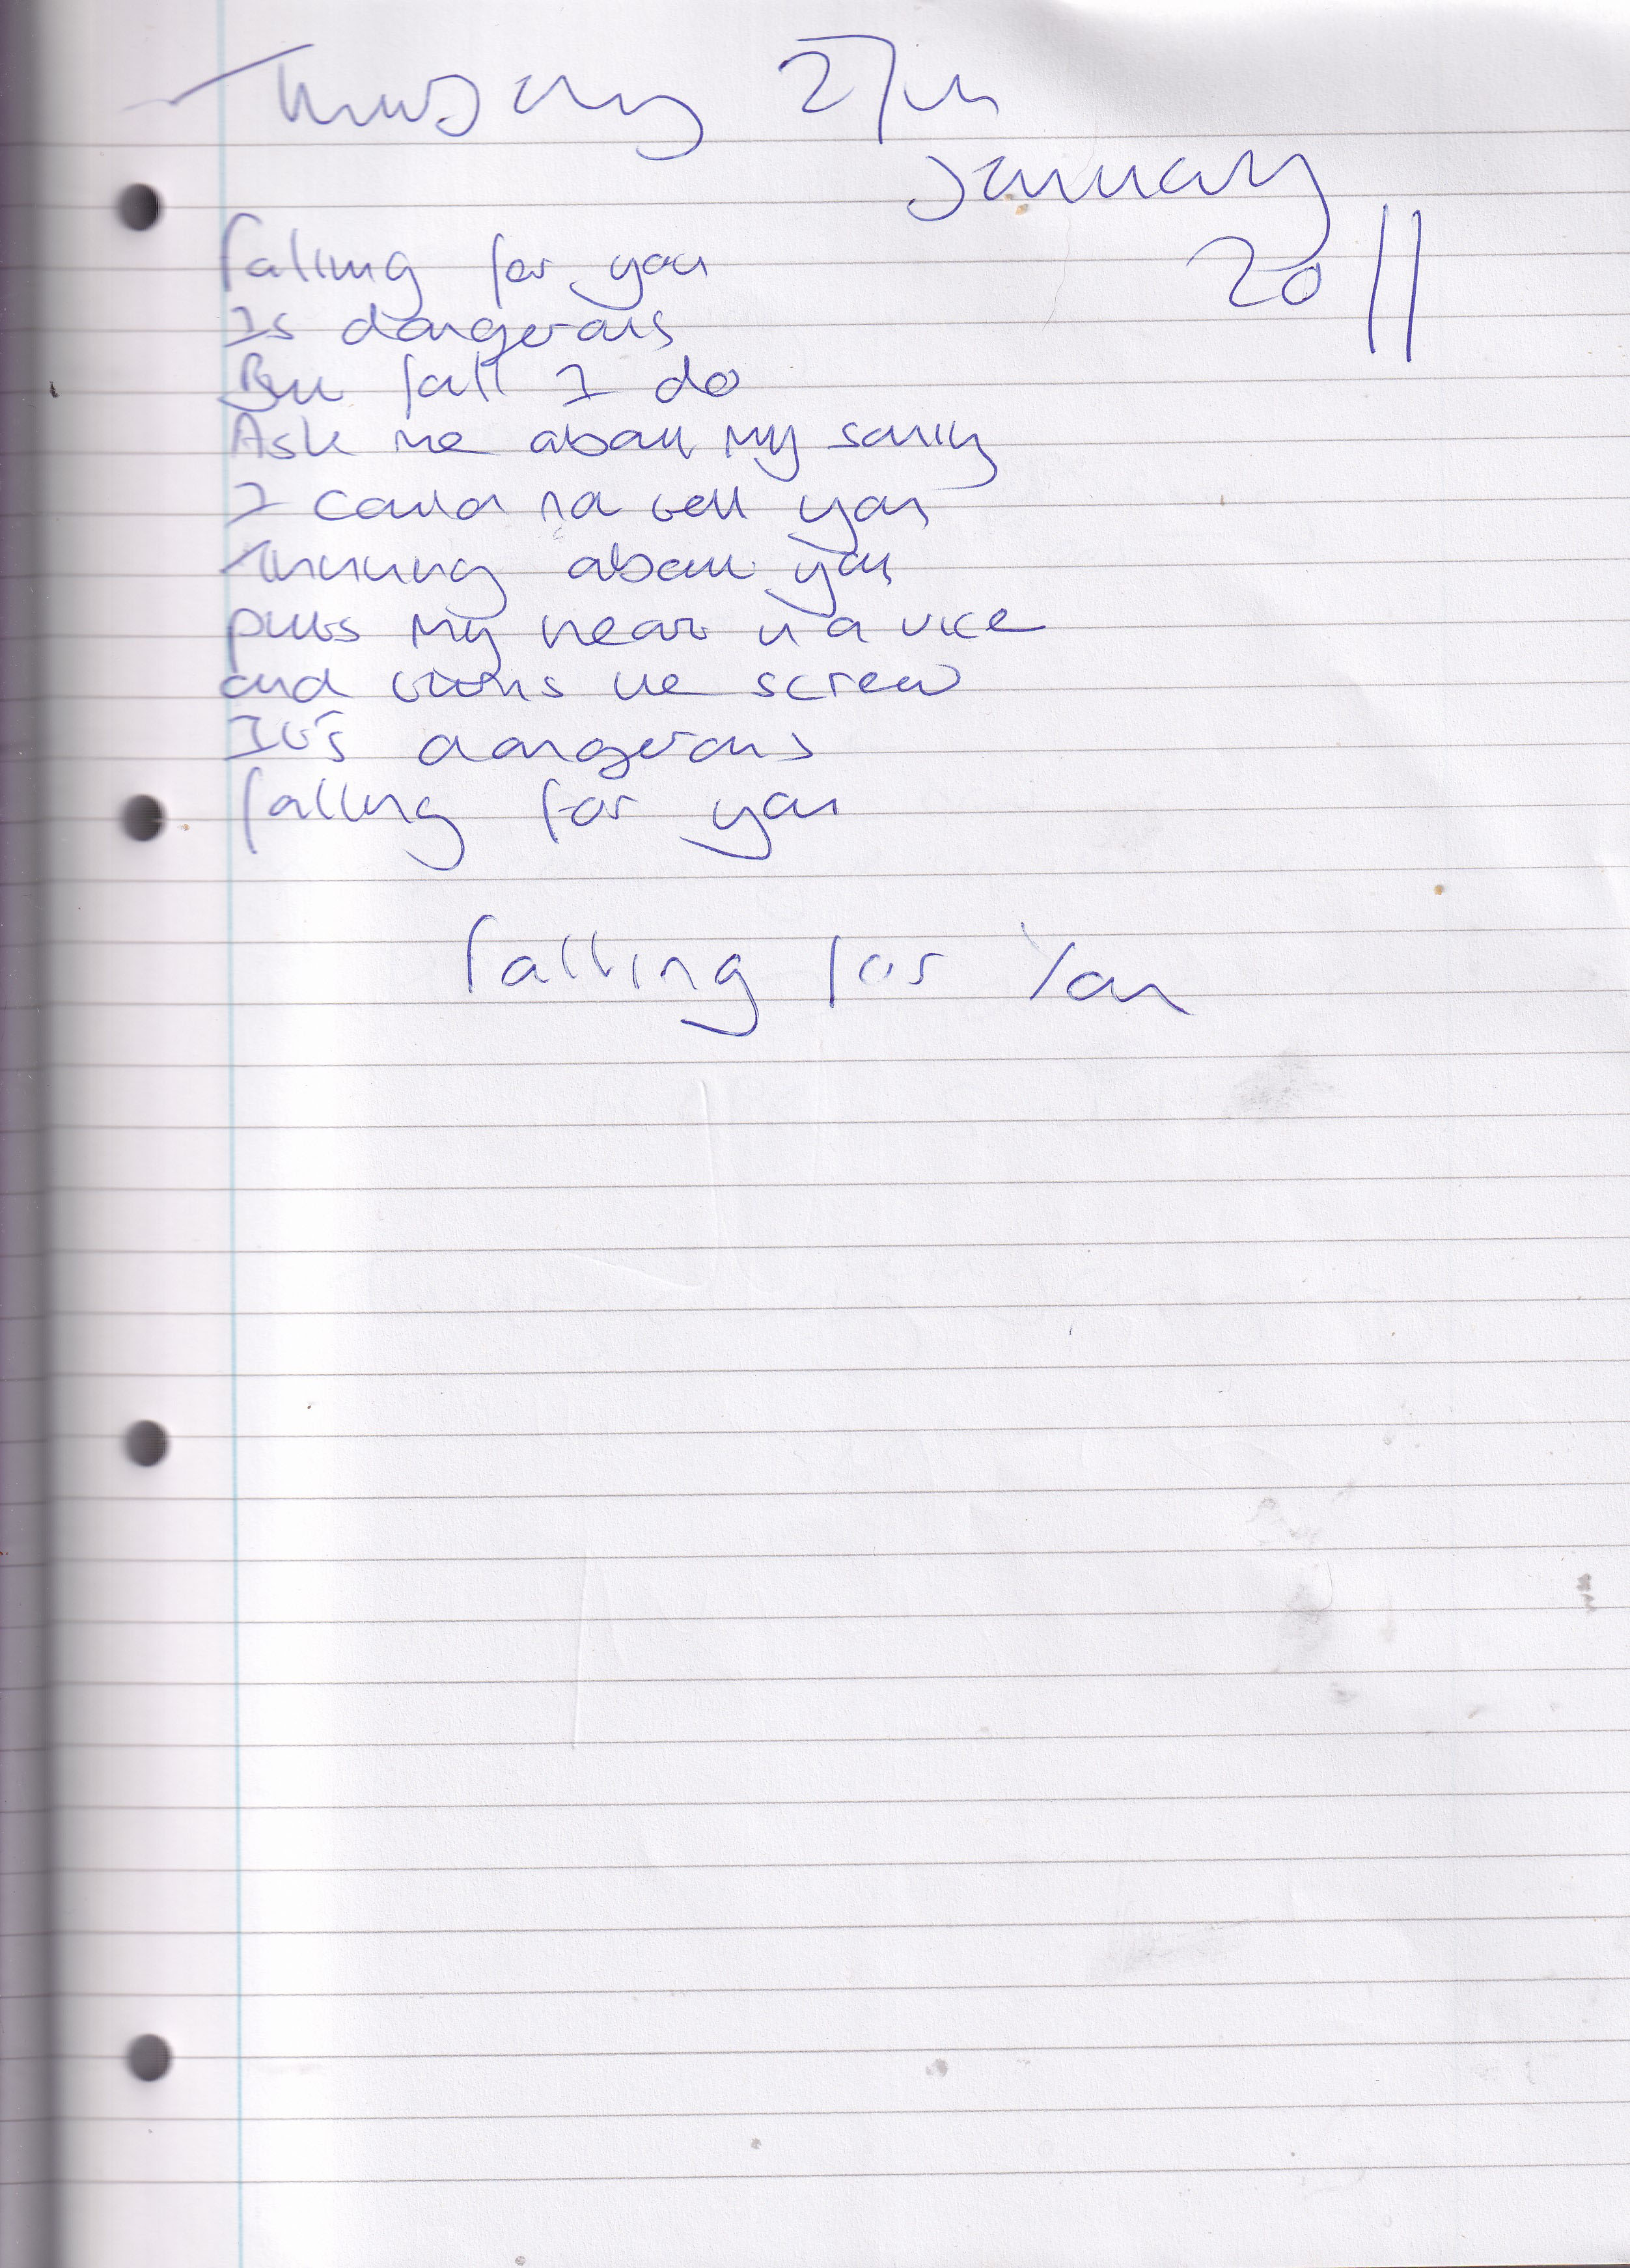 Thursday 27th
January
2011
Falling for you
Is dangerous
But fall I do
Ask me about my sanity
I could not tell you
Thinking about you
puts my heart in a vice
and turns the screw
It's dangerous
falling for you
Falling for You